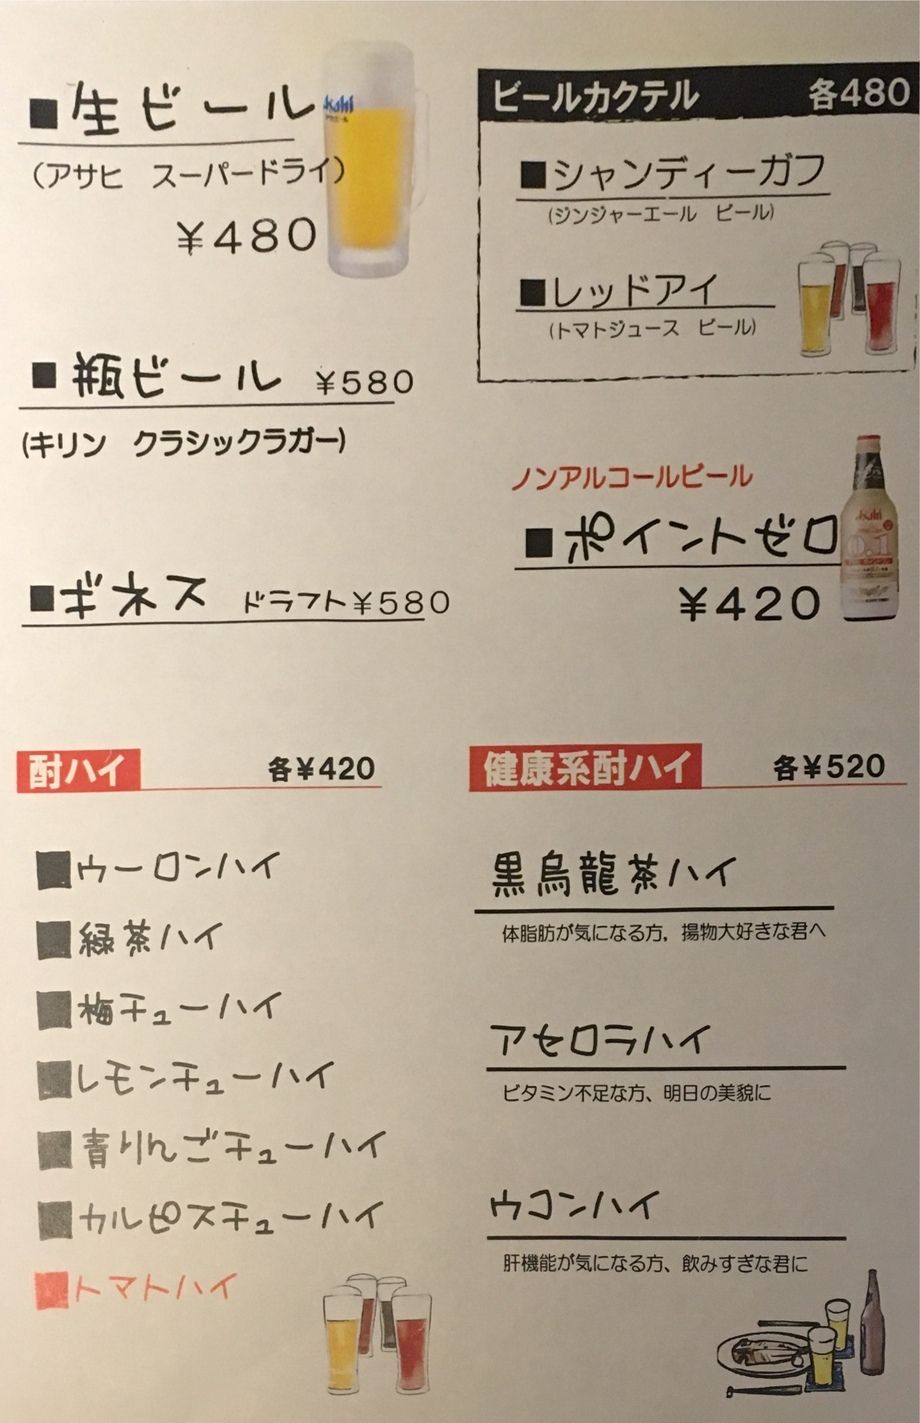 ■生ビール
(アサヒ スーパードライ)
¥480
■瓶ビール ¥580
(キリン クラシックラガー)
■ギネス ドラフト¥580
ビールカクテル 各480
■シャンディーガフ
(ジンジャーエール ビール)
■レッドアイ
(トマトジュース ビール)
ノンアルコールビール
■ポイントゼロ
¥420
Asahi
Asahi
0.1
酎ハイ 各¥420
■ウーロンハイ
■緑茶ハイ
■梅チューハイ
■レモンチューハイ
■青りんごチューハイ
■カルピスチューハイ
■トマトハイ
健康系酎ハイ 各¥520
黒烏龍茶ハイ
体脂肪が気になる方，揚物大好きな君へ
アセロラハイ
ビタミン不足な方、明日の美貌に
ウコンハイ
肝機能が気になる方、飲みすぎな君に